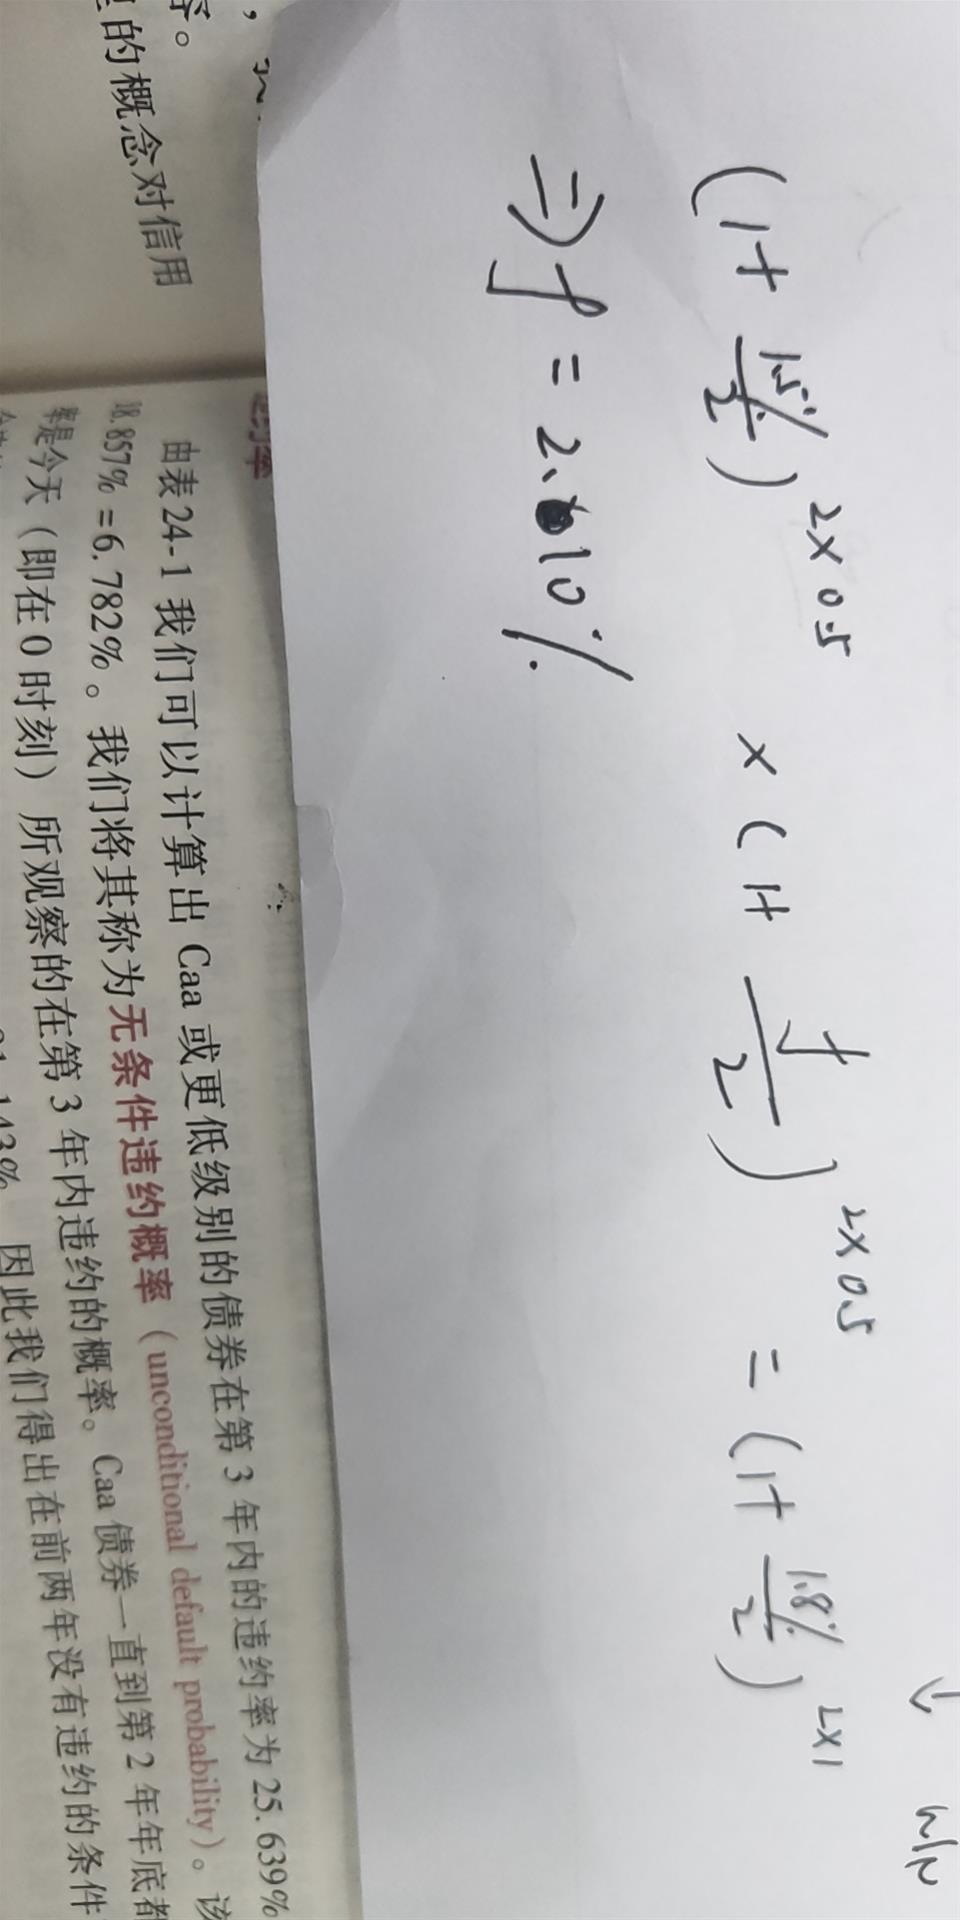 (1+ 1.5%/2)^{2×0.5} × (1+ f/2)^{2×0.5} = (1+ 1.8%/2)^{2×1}
⇒ f = 2.10%
的概念对信用
由表24-1我们可以计算出Caa或更低级别的债券在第3年内的违约率为25.639%
18.857%=6.782%。我们将其称为无条件违约概率(unconditional default probability)。该
率是今天(即在0时刻)所观察的在第3年内违约的概率。Caa债券一直到第2年年底都
143% 因此我们得出在前两年没有违约的条件